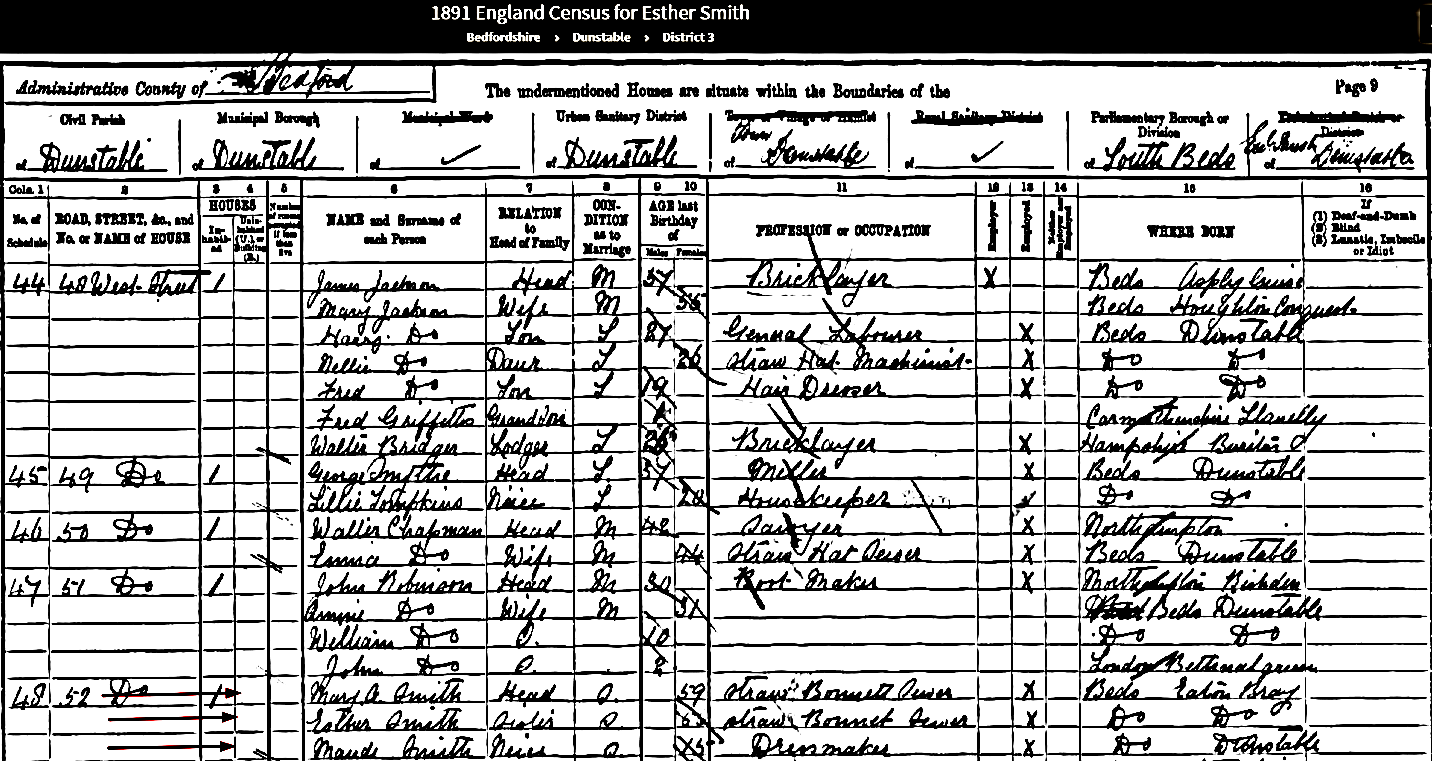 1891 England Census for Esther Smith
Bedfordshire > Dunstable > District 3
Administrative County of Bedford
The undermentioned Houses are situate within the Boundaries of the
Page 9
Civil Parish
Municipal Borough
Municipal Ward
Urban Sanitary District
Town or Village or Hamlet
Rural Sanitary District
Parliamentary Borough or Division
of Dunstable
of Dunstable
of ✓
of Dunstable
of Dunstable
of ✓
of South Beds
of Dunstable
Cols. 1 2 3 4 5 6 7 8 9 10 11 12 13 14 15 16
No. of Schedule
ROAD, STREET, &c., and No. or NAME of HOUSE
HOUSES
In-habited
Unin-habited (U.), or Building (B.)
Number of rooms occupied if less than five
NAME and Surname of each Person
RELATION to Head of Family
CON-DITION as to Marriage
AGE last Birthday of
Males Females
PROFESSION or OCCUPATION
Employer
Employed
Neither Employer nor Employed
WHERE BORN
If
(1) Deaf-and-Dumb
(2) Blind
(3) Lunatic, Imbecile or Idiot
44 48 West Street 1 James Jackson Head M 57 Bricklayer X Beds Asply Guise
Mary Jackson Wife M 55 Beds Houghton Conquest
Harry Do Son S 27 General Labourer X Beds Dunstable
Nellie Do Daur S 26 Straw Hat Machinist X Do Do
Fred Do Son S 19 Hair Dresser X Do Do
Fred Griffiths Grandson Carmarthenshire Llanelly
Walter Bridger Lodger S 26 Bricklayer X Hampshire Buriton
45 49 Do 1 George Smythe Head S 57 Miller X Beds Dunstable
Lillie Tompkins Neice S 20 Housekeeper X Do Do
46 50 Do 1 Walter Chapman Head M 42 Sawyer X Northampton
Emma Do Wife M 44 Straw Hat Sewer X Beds Dunstable
47 51 Do 1 John Robinson Head M 30 Boot Maker X
Annie Do Wife M 31 Beds Dunstable
William Do 10 Do Do
John Do 2 London Bethnal green
48 52 Do 1 Mary A. Smith Head S. 59 Straw Bonnett Sewer X Beds Eaton Bray
Esther Smith Sister S Straw Bonnet Sewer X Do Do
Maude Smith Neice S Dressmaker X Do Dunstable